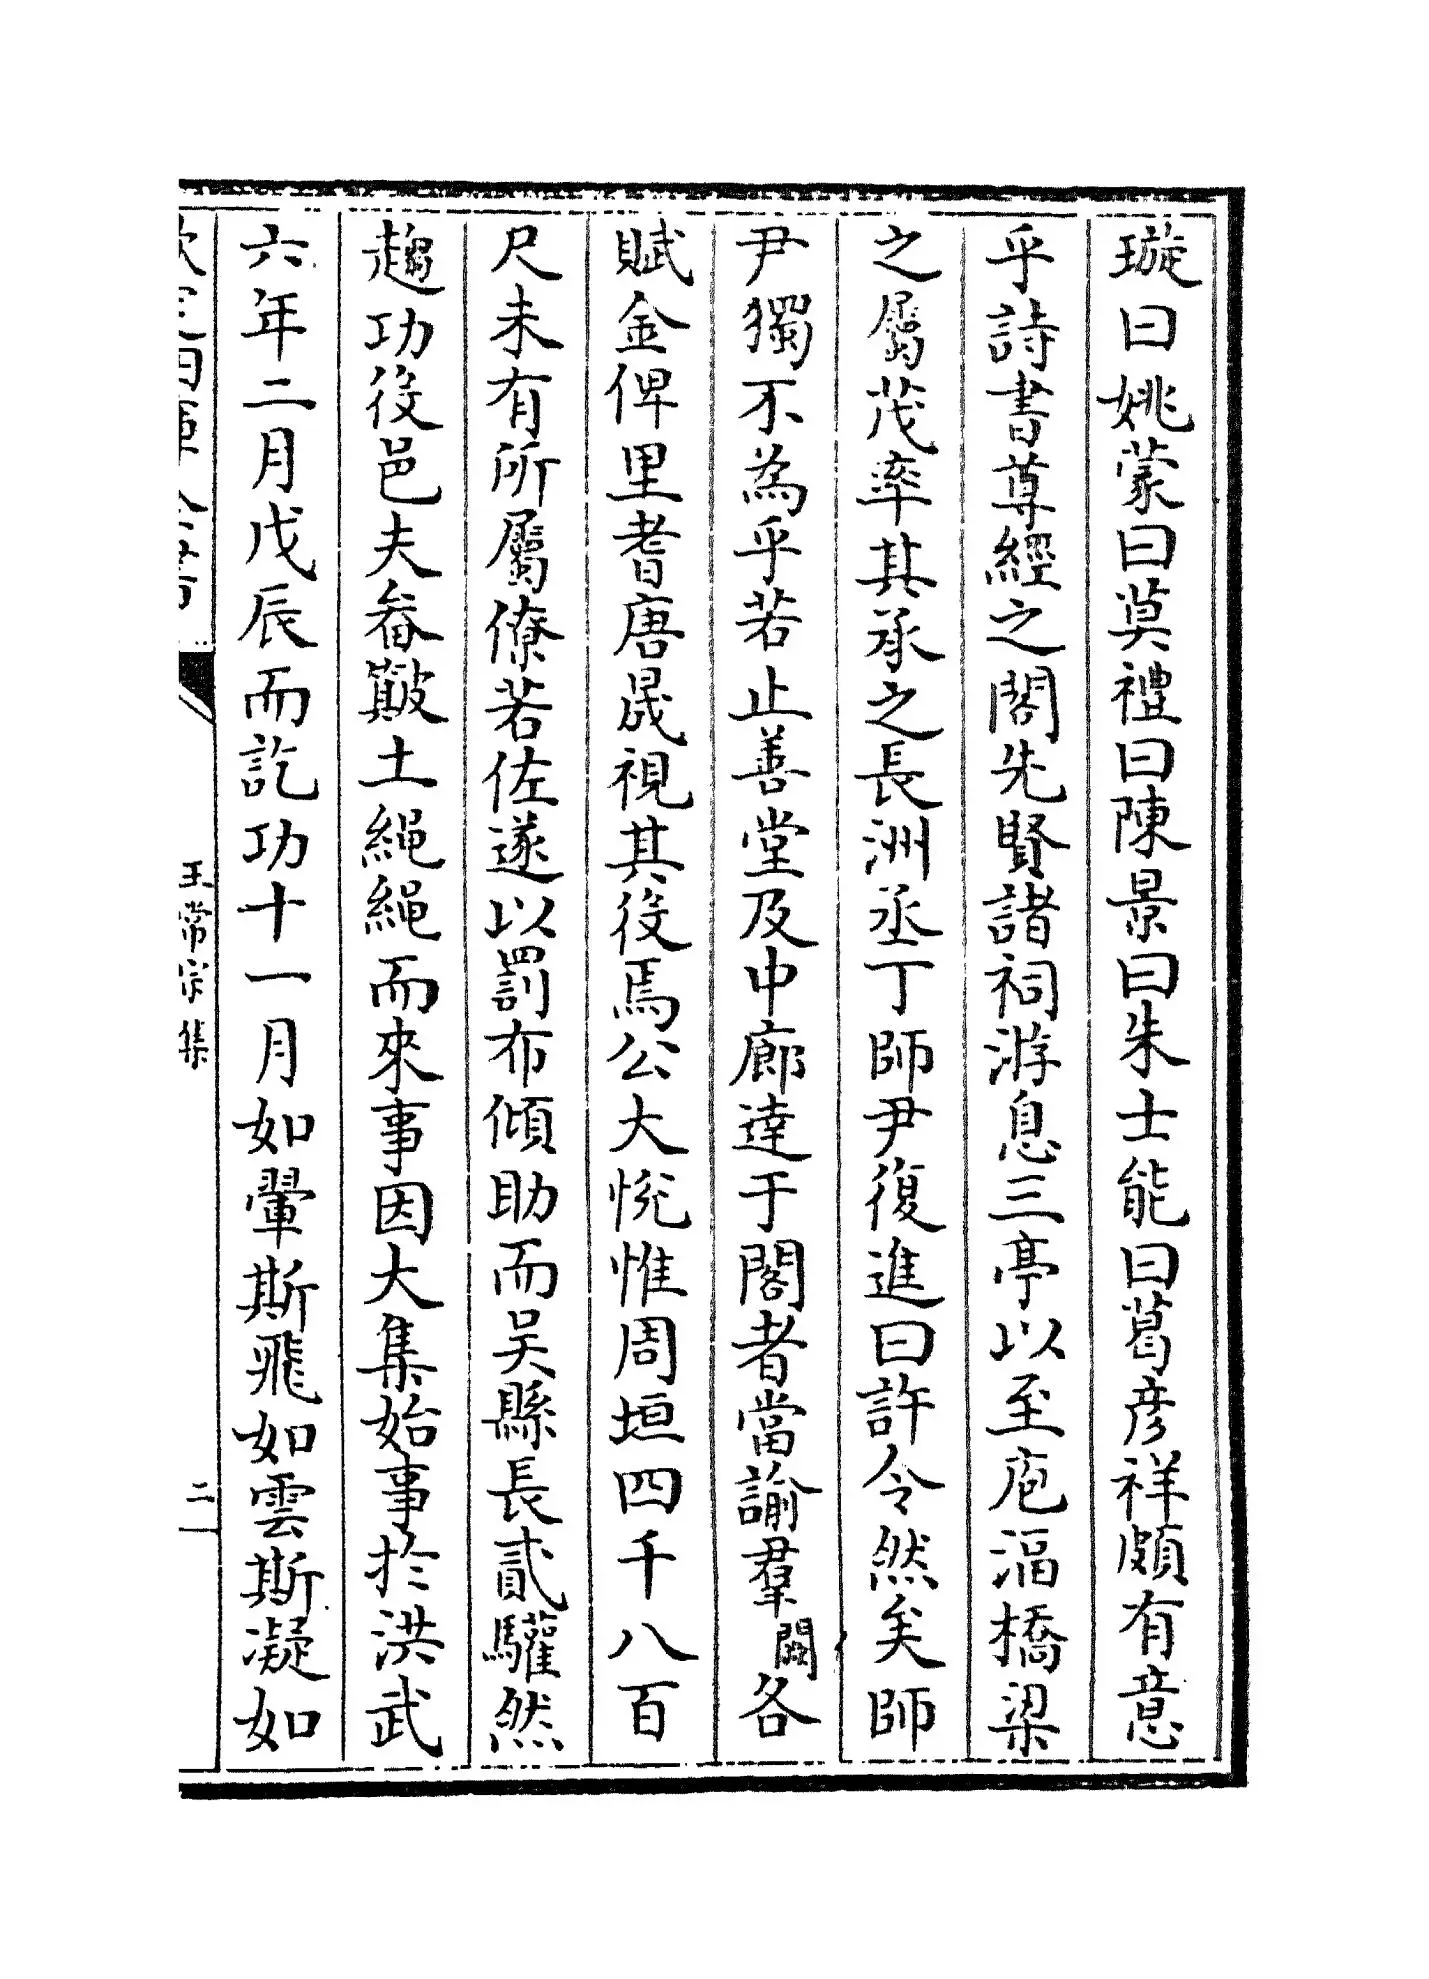 璇曰姚蒙曰莫禮曰陳景曰朱士能曰葛彦祥頗有意
乎詩書尊經之閣先賢諸祠游息三亭以至庖湢橋梁
之屬茂率其承之長洲丞丁師尹復進曰許令然矣師
尹獨不為乎若止善堂及中廊達于閣者當諭羣闕各
賦金俾里耆唐晟視其役焉公大恱惟周垣四千八百
尺未有所屬僚若佐遂以罰布傾助而吴縣長貳驩然
趨功役邑夫畚簸土繩繩而來事因大集始事於洪武
六年二月戊辰而訖功十一月如翬斯飛如雲斯凝如
王常宗集
二